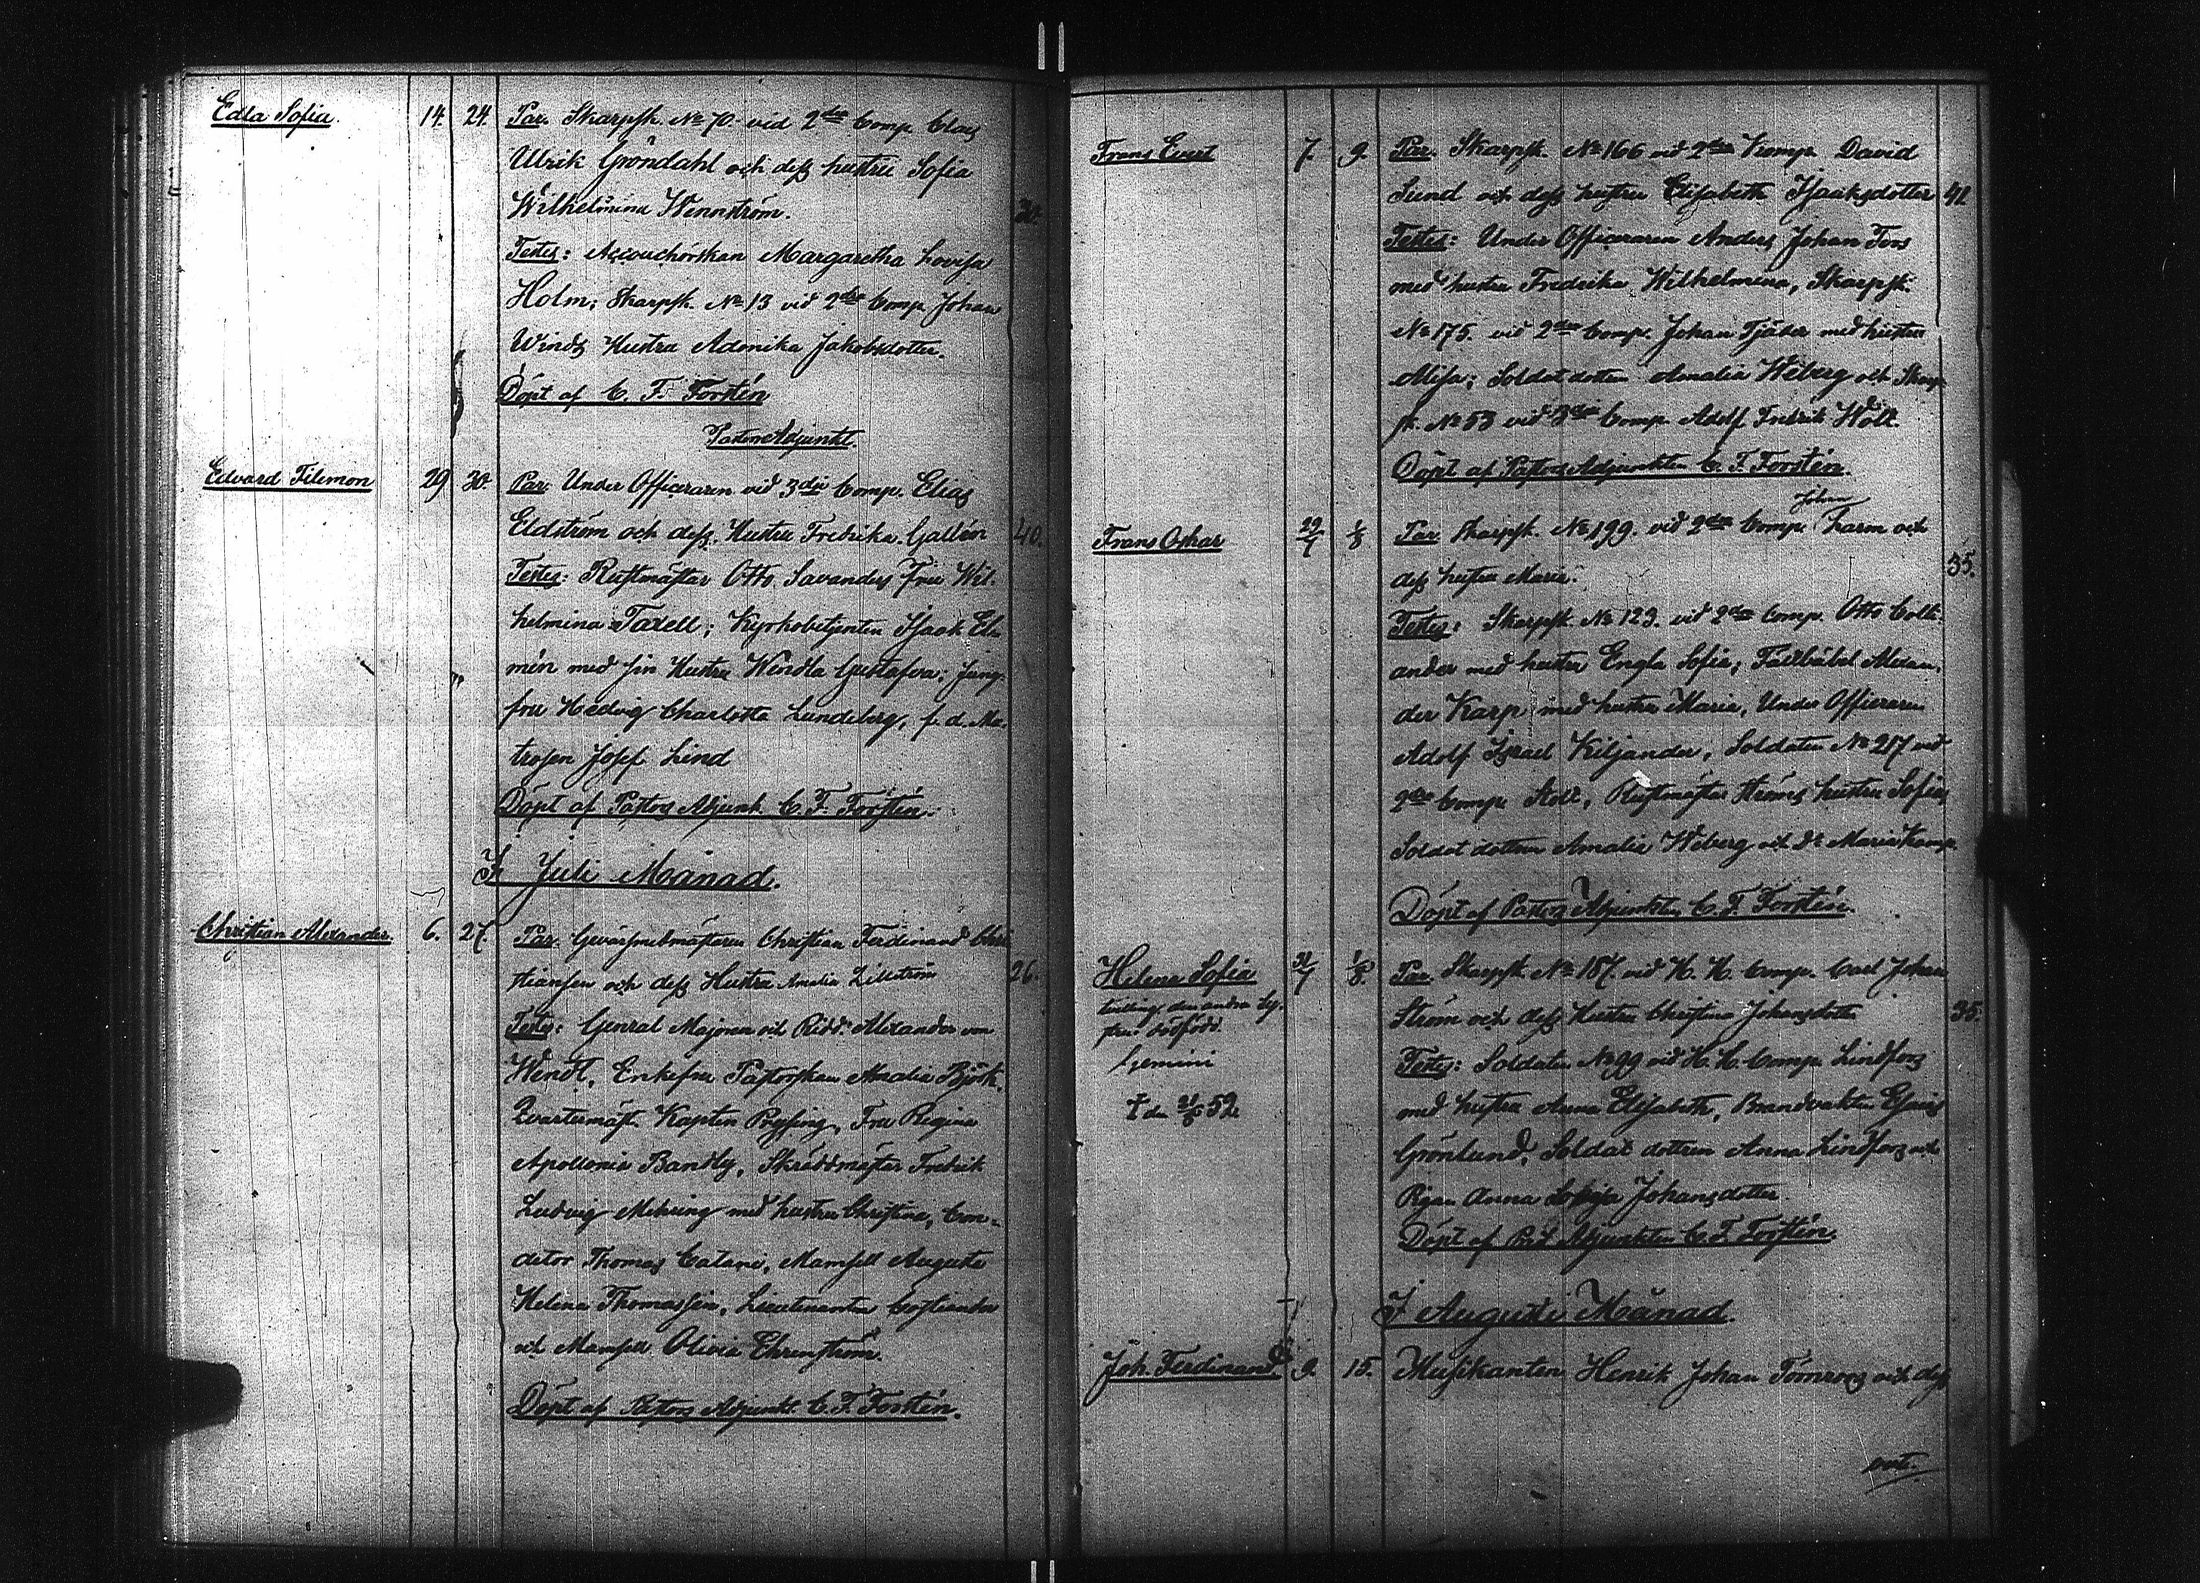 Edla Sofia. 14. 24. Par. Skarpsk. No 70. vid 2dra Comp. Claes
Ulrik Gröndahl och dess hustru Sofia
Wilhelmina Wennström. 30.
Testes: Accouchörskan Margaretha Lovisa
Holm; Skarpsk. No 13 vid 2dra Comp. Johan
Winds Hustru Adonika Jakobsdotter.
Döpt af C. F. Forstén
Pastors Adjunkt.
Edvard Filemon 29 30. Par. Under Officeraren vid 3dje Comp. Elias
Eldström och dess Hustru Fredrika Gallén 40.
Testes: Rustmästar Otto Savanders Fru Wil-
helmina Taxell; Kyrkobetjenten Isaak Ek-
mén med sin Hustru Wendla Gustafva; Jung-
fru Hedvig Charlotta Lundeberg, f. d. Ma-
trosen Josef Lind
Döpt af Pastors Adjunkt. C. F. Forstén.
I Juli Månad.
Christian Alexander 6. 27. Par. Gevärssmedmästaren Christian Ferdinand Chri
stiansen och dess Hustru Amalia Lillström 26.
Testes: General Majoren och Ridd. Alexander von
Wendt, Enkefru Pastorskan Amalia Björk,
Kvartermäst. Kapten Pryssing, Fru Regina
Apollonia Bandly, Skräddmäster Fredrik
Ludvig Mehring med hustru Christina, Con-
ditor Thomas Catani, Mamsell Augusta
Helena Thomassin, Lieutenanten
och Mamsell Olivia Ehrenström.
Döpt af Pastors Adjunkt C. F. Forstén.
Frans Evert 7. 9. Par. Skarpsk. No 166 vid 2dra Komp. David
Lund och dess hustru Elisabeth Isaaksdotter 41
Testes: Under Officeraren Anders Johan Fors
med hustru Fredrika Wilhelmina, Skarpsk.
No 175. vid 2dra Comp. Johan Tjäder med hustru
Misa; Soldat dottren Amalia Wiberg och Skarp
sk. No 53 vid 3dje Comp. Adolf Fredrik Wolt.
Döpt af Pastors Adjunkten C. F. Forstén.
Johan
Frans Oskar 29/7 1/8 Par. Skarpsk. No 199. vid 2dra Comp. Farm och
dess hustru Maria. 35.
Testes: Skarpsk. No 123. vid 2dra Comp. Otto Colli-
ander med hustru Engla Sofia; Fältväbel Alexan-
der Karp med hustru Maria, Under Officeraren
Adolf Israel Kiljander, Soldaten No 217 vid
2dra Comp. Stolt, Rustmästar Ströms hustru Sofia,
Soldat dottren Amalia Wiberg och do Maria Kemp.
Döpt af Pastors Adjunkten C. F. Forstén.
Helena Sofia 31/7 1/8. Par. Skarpsk No 187. vid H. K. Comp. Carl Johan
tvilling, den andra sy-
Ström och dess Hustru Christina Johansdotter 35.
stern dödfödd.
Gemini
Testes: Soldaten No 99 vid H. K. Comp. Lindfors
† den 21/8 52
med hustru Anna Elisabeth, Brandvakten Esaias
Grönlund, Soldat dottren Anna Lindfors och
Pigan Anna Lovisa Johansdotter.
Döpt af Past. Adjunkten C. F. Forstén.
I Augusti Månad.
Joh. Ferdinand 9. 15. Musikanten Henrik Johan Törnroos och dess
vert.